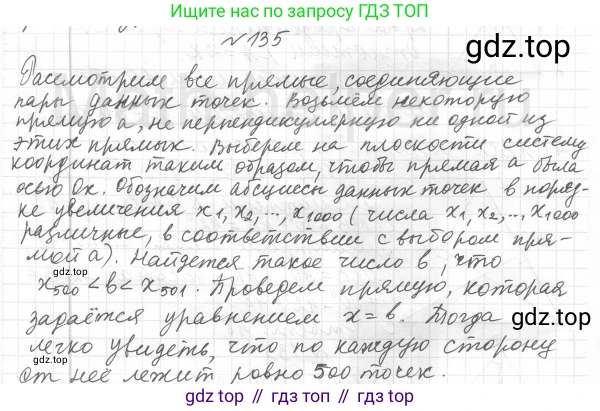 Ищите нас по запросу ГДЗ ТОП
№135
gdz.top
Рассмотрим все прямые, соединяющие
пары данных точек. Возьмём некоторую
прямую a, не перпендикулярную ни одной из
этих прямых. Выберем на плоскости систему
координат таким образом, чтобы прямая a была
осью Ox. Обозначим абсциссы данных точек в поряд-
ке увеличения x₁, x₂, ..., x₁₀₀₀ (числа x₁, x₂, ..., x₁₀₀₀
различные, в соответствии с выбором пря-
мой a). Найдется такое число b, что
gdz.top
x₅₀₀ < b < x₅₀₁. Проведем прямую, которая
задаётся уравнением x = b. Тогда
легко увидеть, что по каждую сторону
от неё лежит ровно 500 точек.
gdz.top // gdz.top // gdz.top